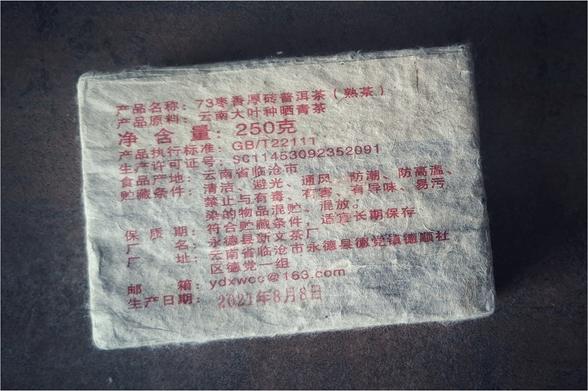 产品名称：73枣香厚砖普洱茶（熟茶）
产品原料：云南大叶种晒青茶
净含量：250克
产品执行标准：GB/T22111
生产许可证号：SC11453092352091
食品产地：云南省临沧市
贮藏条件：清洁、避光、通风、防潮、防高温、
禁止与有毒、有害、有异味、易污
染的物品混贮、混放。
保质期：符合贮藏条件，适宜长期保存
厂名：永德县新文茶厂
厂址：云南省临沧市永德县德党镇德顺社
区德党一组
邮箱：ydxwcc@163.com
生产日期：2021年8月8日